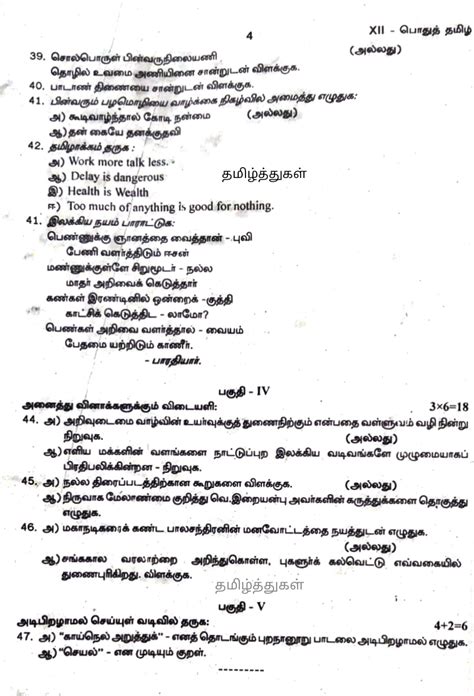 4
XII - பொதுத் தமிழ்
39. சொல்பொருள் பின்வருநிலையணி (அல்லது)
தொழில் உவமை அணியினை சான்றுடன் விளக்குக.
40. பாடாண் திணையை சான்றுடன் விளக்குக.
41. பின்வரும் பழமொழியை வாழ்க்கை நிகழ்வில் அமைத்து எழுதுக:
அ) கூடிவாழ்ந்தால் கோடி நன்மை (அல்லது)
ஆ) தன் கையே தனக்குதவி
42. தமிழாக்கம் தருக :
அ) Work more talk less.
ஆ) Delay is dangerous
தமிழ்த்துகள்
இ) Health is Wealth
ஈ) Too much of anything is good for nothing.
41. இலக்கிய நயம் பாராட்டுக:
பெண்ணுக்கு ஞானத்தை வைத்தான் - புவி
பேணி வளர்த்திடும் ஈசன்
மண்ணுக்குள்ளே சிறுமூடர் - நல்ல
மாதர் அறிவைக் கெடுத்தார்
கண்கள் இரண்டினில் ஒன்றைக் -குத்தி
காட்சிக் கெடுத்திட - லாமோ?
பெண்கள் அறிவை வளர்த்தால் - வையம்
பேதமை யற்றிடும் காணீர்.
- பாரதியார்.
பகுதி - IV
அனைத்து வினாக்களுக்கும் விடையளி: 3×6=18
44. அ) அறிவுடைமை வாழ்வின் உயர்வுக்குத் துணைநிற்கும் என்பதை வள்ளுவம் வழி நின்று
நிறுவுக. (அல்லது)
ஆ) எளிய மக்களின் வளங்களை நாட்டுப்புற இலக்கிய வடிவங்களே முழுமையாகப்
பிரதிபலிக்கின்றன - நிறுவுக.
45. அ) நல்ல திரைப்படத்திற்கான கூறுகளை விளக்குக. (அல்லது)
ஆ) நிருவாக மேலாண்மை குறித்து வெ.இறையன்பு அவர்களின் கருத்துக்களை தொகுத்து
எழுதுக.
46. அ) மகாநடிகரைக் கண்ட பாலசந்திரனின் மனவோட்டத்தை நயத்துடன் எழுதுக.
(அல்லது)
ஆ) சங்ககால வரலாற்றை அறிந்துகொள்ள, புகளூர்க் கல்வெட்டு எவ்வகையில்
துணைபுரிகிறது. விளக்குக.
தமிழ்த்துகள்
பகுதி - V
அடிபிறழாமல் செய்யுள் வடிவில் தருக: 4+2=6
47. அ) "காய்நெல் அறுத்துக்" - எனத் தொடங்கும் புறநானூறு பாடலை அடிபிறழாமல் எழுதுக.
ஆ) "செயல்" - என முடியும் குறள்.
---------